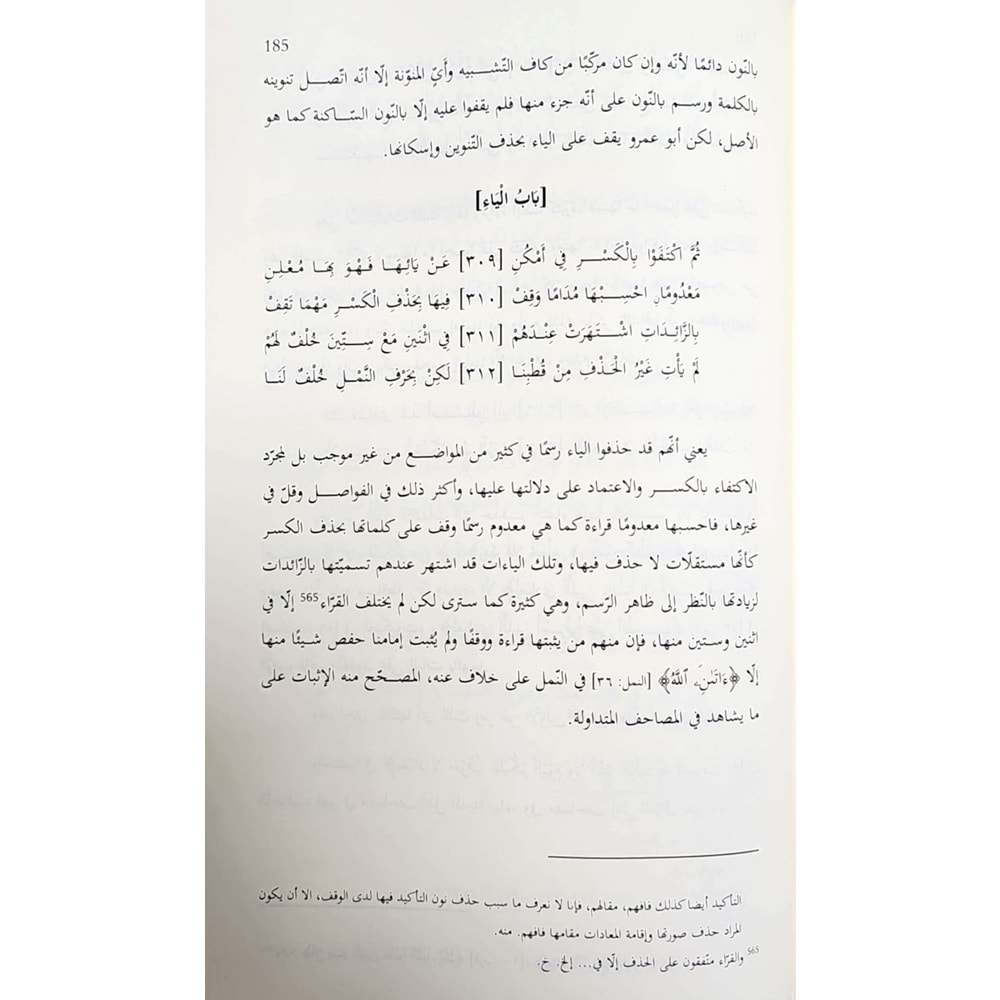 185
بالنّون دائمًا لأنّه وإن كان مركّبًا من كاف التّشبيه وأيٍّ المنوّنة إلّا أنه اتّصل تنوينه
بالكلمة ورسم بالنّون على أنّه جزء منها فلم يقفوا عليه إلّا بالنّون السّاكنة كما هو
الأصل، لكن أبو عمرو يقف على الياء بحذف التّنوين وإسكانها.
[بَابُ الْيَاءِ]
ثُمَّ اكْتَفَوْا بِالْكَسْرِ فِي أَمْكُنِ [٣٠٩] عَنْ يَائِهَا فَهْوَ بِهَا مُعْلِنِ
مَعْدُومًا احْسِبْهَا مُدَامًا وَقِفْ [٣١٠] فِيهَا بِحَذْفِ الْكَسْرِ مَهْمَا تَقِفْ
بِالزَّائِدَاتِ اشْتَهَرَتْ عِنْدَهُمْ [٣١١] فِي اثْنَيْنِ مَعْ سِتِّينَ خُلْفٌ لَهُمْ
لَمْ يَأْتِ غَيْرُ الْحَذْفِ مِنْ قُطْبِنَا [٣١٢] لَكِنْ بِحَرْفِ النَّمْلِ خُلْفٌ لَنَا
يعني أنّهم قد حذفوا الياء رسمًا في كثير من المواضع من غير موجب بل لمجرّد
الاكتفاء بالكسر والاعتماد على دلالتها عليها، وأكثر ذلك في الفواصل وقلّ في
غيرها، فاحسبها معدومًا قراءة كما هي معدوم رسمًا وقف على كلماتها بحذف الكسر
كأنّها مستقلّات لا حذف فيها، وتلك الياءات قد اشتهر عندهم تسميّتها بالزّائدات
لزيادتها بالنّظر إلى ظاهر الرّسم، وهي كثيرة كما سترى لكن لم يختلف القرّاء565 إلّا في
اثنين وستين منها، فإن منهم من يثبتها قراءة ووقفًا ولم يُثبت إمامنا حفص شيئًا منها
إلّا ﴿ءَاتَىٰنِۦَ ٱللَّهُ﴾ [النمل: ٣٦] في النّمل على خلاف عنه، المصحّح منه الإثبات على
ما يشاهد في المصاحف المتداولة.
التأكيد أيضا كذلك فافهم، مقالهم، فإنا لا نعرف ما سبب حذف نون التأكيد فيها لدى الوقف، الا أن يكون
المراد حذف صورتها وإقامة المعادات مقامها فافهم. منه.
565 والقرّاء متّفقون على الحذف إلّا في... إلخ. خ.